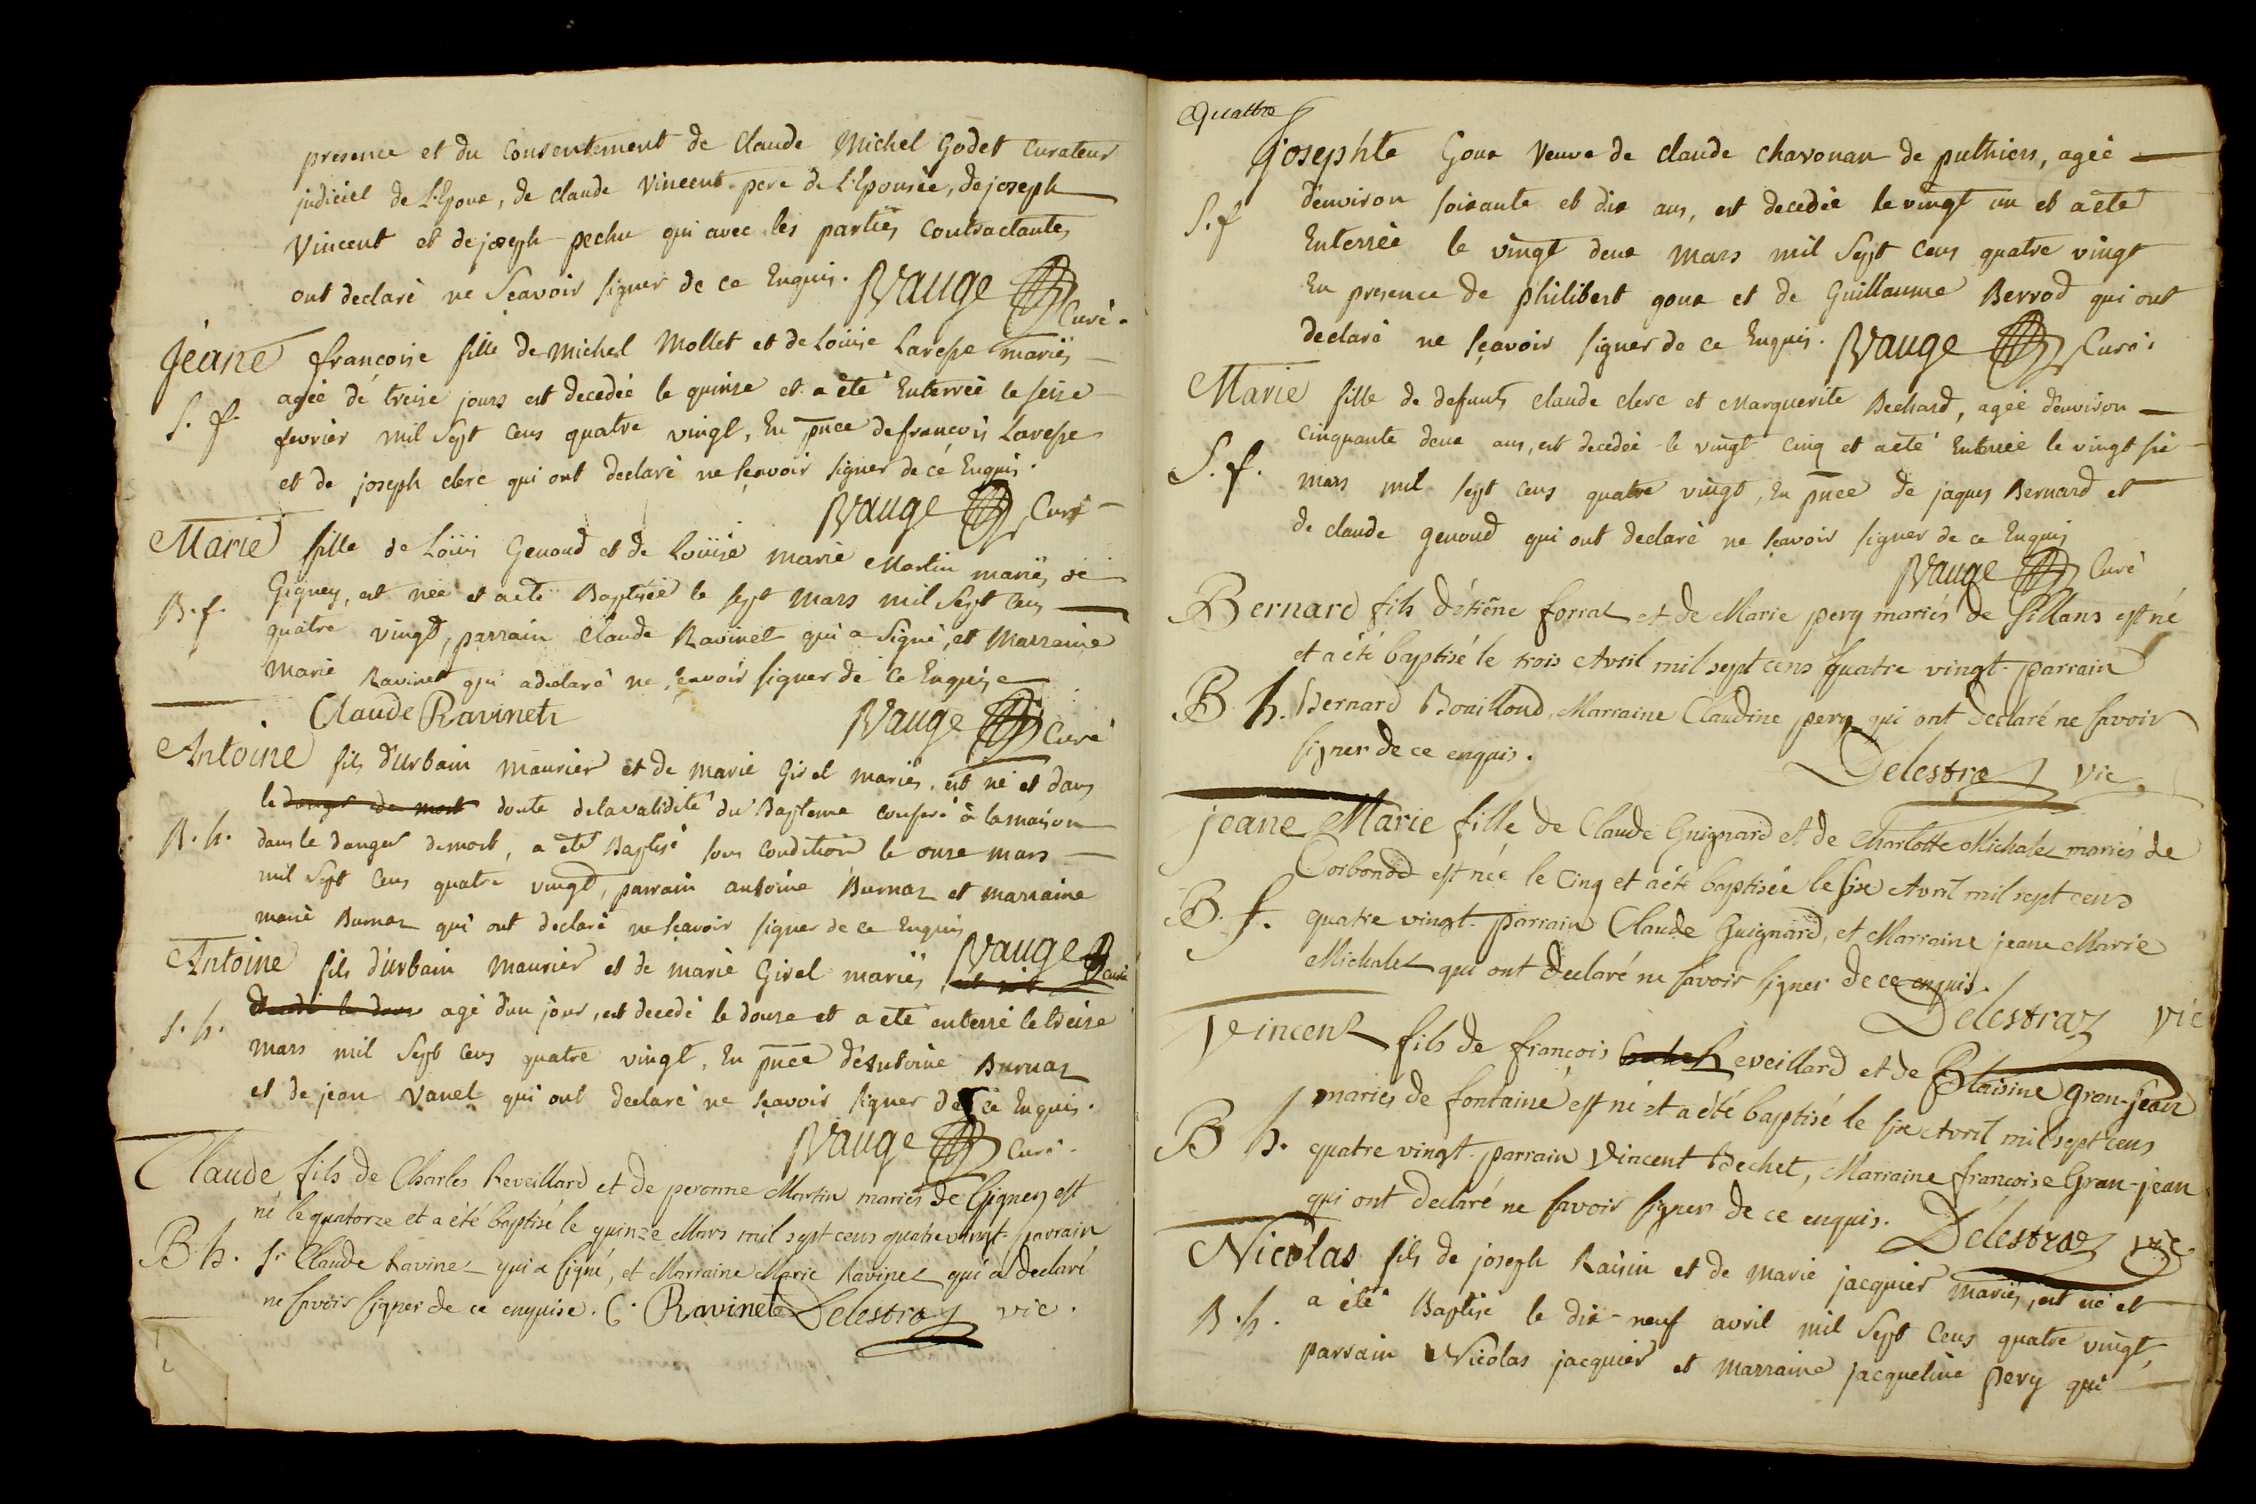 presence et du Consentement de Claude Michel Godet Curateur
judiciel de L'Epoux, de claude Vincent pere de L'Epousée, de joseph
Vincent et de joseph pechu qui avec les parties Contractantes
ont declaré ne Sçavoir signer de ce Enquis. Vauge Curé.
Jeane francoise fille de Michel Mollet et de Loüise Larespe mariës
agée de treise jours est decedée le quinse et a été Enterreé le seise
S. f.
fevrier mil Sept Cens quatre vingt, En pnce de francois Larespe
et de joseph clerc qui ont declaré ne sçavoir signer de ce Enquis.
Vauge Curé
Marie fille de Loüis Genoud et de Loüise marie Martin mariës de
Gigney, est neé et a eté Baptiseé le sept mars mil Sept Cens
B. f.
quatre vingt, parrain Claude Ravinet qui a Signé, et Marraine
Marie Ravinet qui a declaré ne sçavoir signer de ce Enquise
Claude Ravinet Vauge Curé
Antoine fils d'urbain maurier et de marie Girel mariës, est né et dans
le danger de mort doute de la validité du Bapteme conferé à la maison
B. h.
dans le danger de mort, a été Baptisé sous Condition le onse mars
mil Sept Cens quatre vingt, parrain antoine Burnaz et marraine
marie Burnaz qui ont declaré ne sçavoir signer de ce Enquis
Vauge Curé
Antoine fils d'urbain maurier et de marie Girel mariës est né
decedé le douse agé d'un jour, est decedé le douse et a eté enterré le treise
S. h.
mars mil Sept Cens quatre vingt, En pnce d'Antoine Burnaz
et de jean Vanel qui ont declaré ne sçavoir signer de ce Enquis.
Vauge Curé.
Claude fils de Charles Reveillard et de peronne Martin mariés de Gigney est
né le quatorze et a été baptisé le quinze Mars mil sept cens quatre vingt. parrain
B. h.
sr Claude Ravinet qui a signé, et Marraine Marie Ravinet qui a declaré
ne savoir signer de ce enquise. C. Ravinet Delestraz vic.
Quattre
josephte Goux Veuve de claude chavonan de puthiers, ageé
d'environ soixante et dix ans, est decedée le vingt un et a eté
S. f
Enterreé le vingt deux mars mil Sept Cens quatre vingt
En presence de philibert goux et de Guillaume Berrod qui ont
declaré ne sçavoir signer de ce Enquis. Vauge Curé.
Marie fille de defunts claude clerc et Marguerite Bechard, ageé d'environ
cinquante deux ans, est decedeé le vingt cinq et a eté Enterreé le vingt six
S. f.
mars mil sept cens quatre vingt, En pnce de jaques Bernard et
de claude genoud qui ont declaré ne sçavoir signer de ce Enquis
Vauge Curé
Bernard fils d'etiéne forrat et de Marie pery mariés de Sillans est né
et a été baptisé le trois Avril mil sept cens quatre vingt. parrain
B. h.
Bernard Bouilloud, Marraine Claudine pery qui ont declaré ne savoir
signer de ce enquis.
Delestraz vic
jeane Marie fille de Claude Guignard et de Charlotte Michalet mariés de
Corbonod est née le cinq et a été baptisée le six Avril mil sept cens
B. f.
quatre vingt. parrain Claude Guignard, et Marraine jeane Marie
Michalet qui ont declaré ne savoir signer de ce enquis.
Delestraz vic
Vincent fils de françois Reveillard et de Blaisine gran-jean
mariés de fontaine est né et a été baptisé le six Avril mil sept cens
B h.
quatre vingt. parrain Vincent Bechet, Marraine françoise Gran-jean
qui ont declaré ne savoir signer de ce enquis. Delestraz vic
Nicolas fils de joseph Raisin et de Marie jacquier mariës, est né et
B. h.
a été Baptisé le dix-neuf avril mil Sept Cens quatre vingt,
parrain Nicolas jacquier et marraine jacqueline pery qui